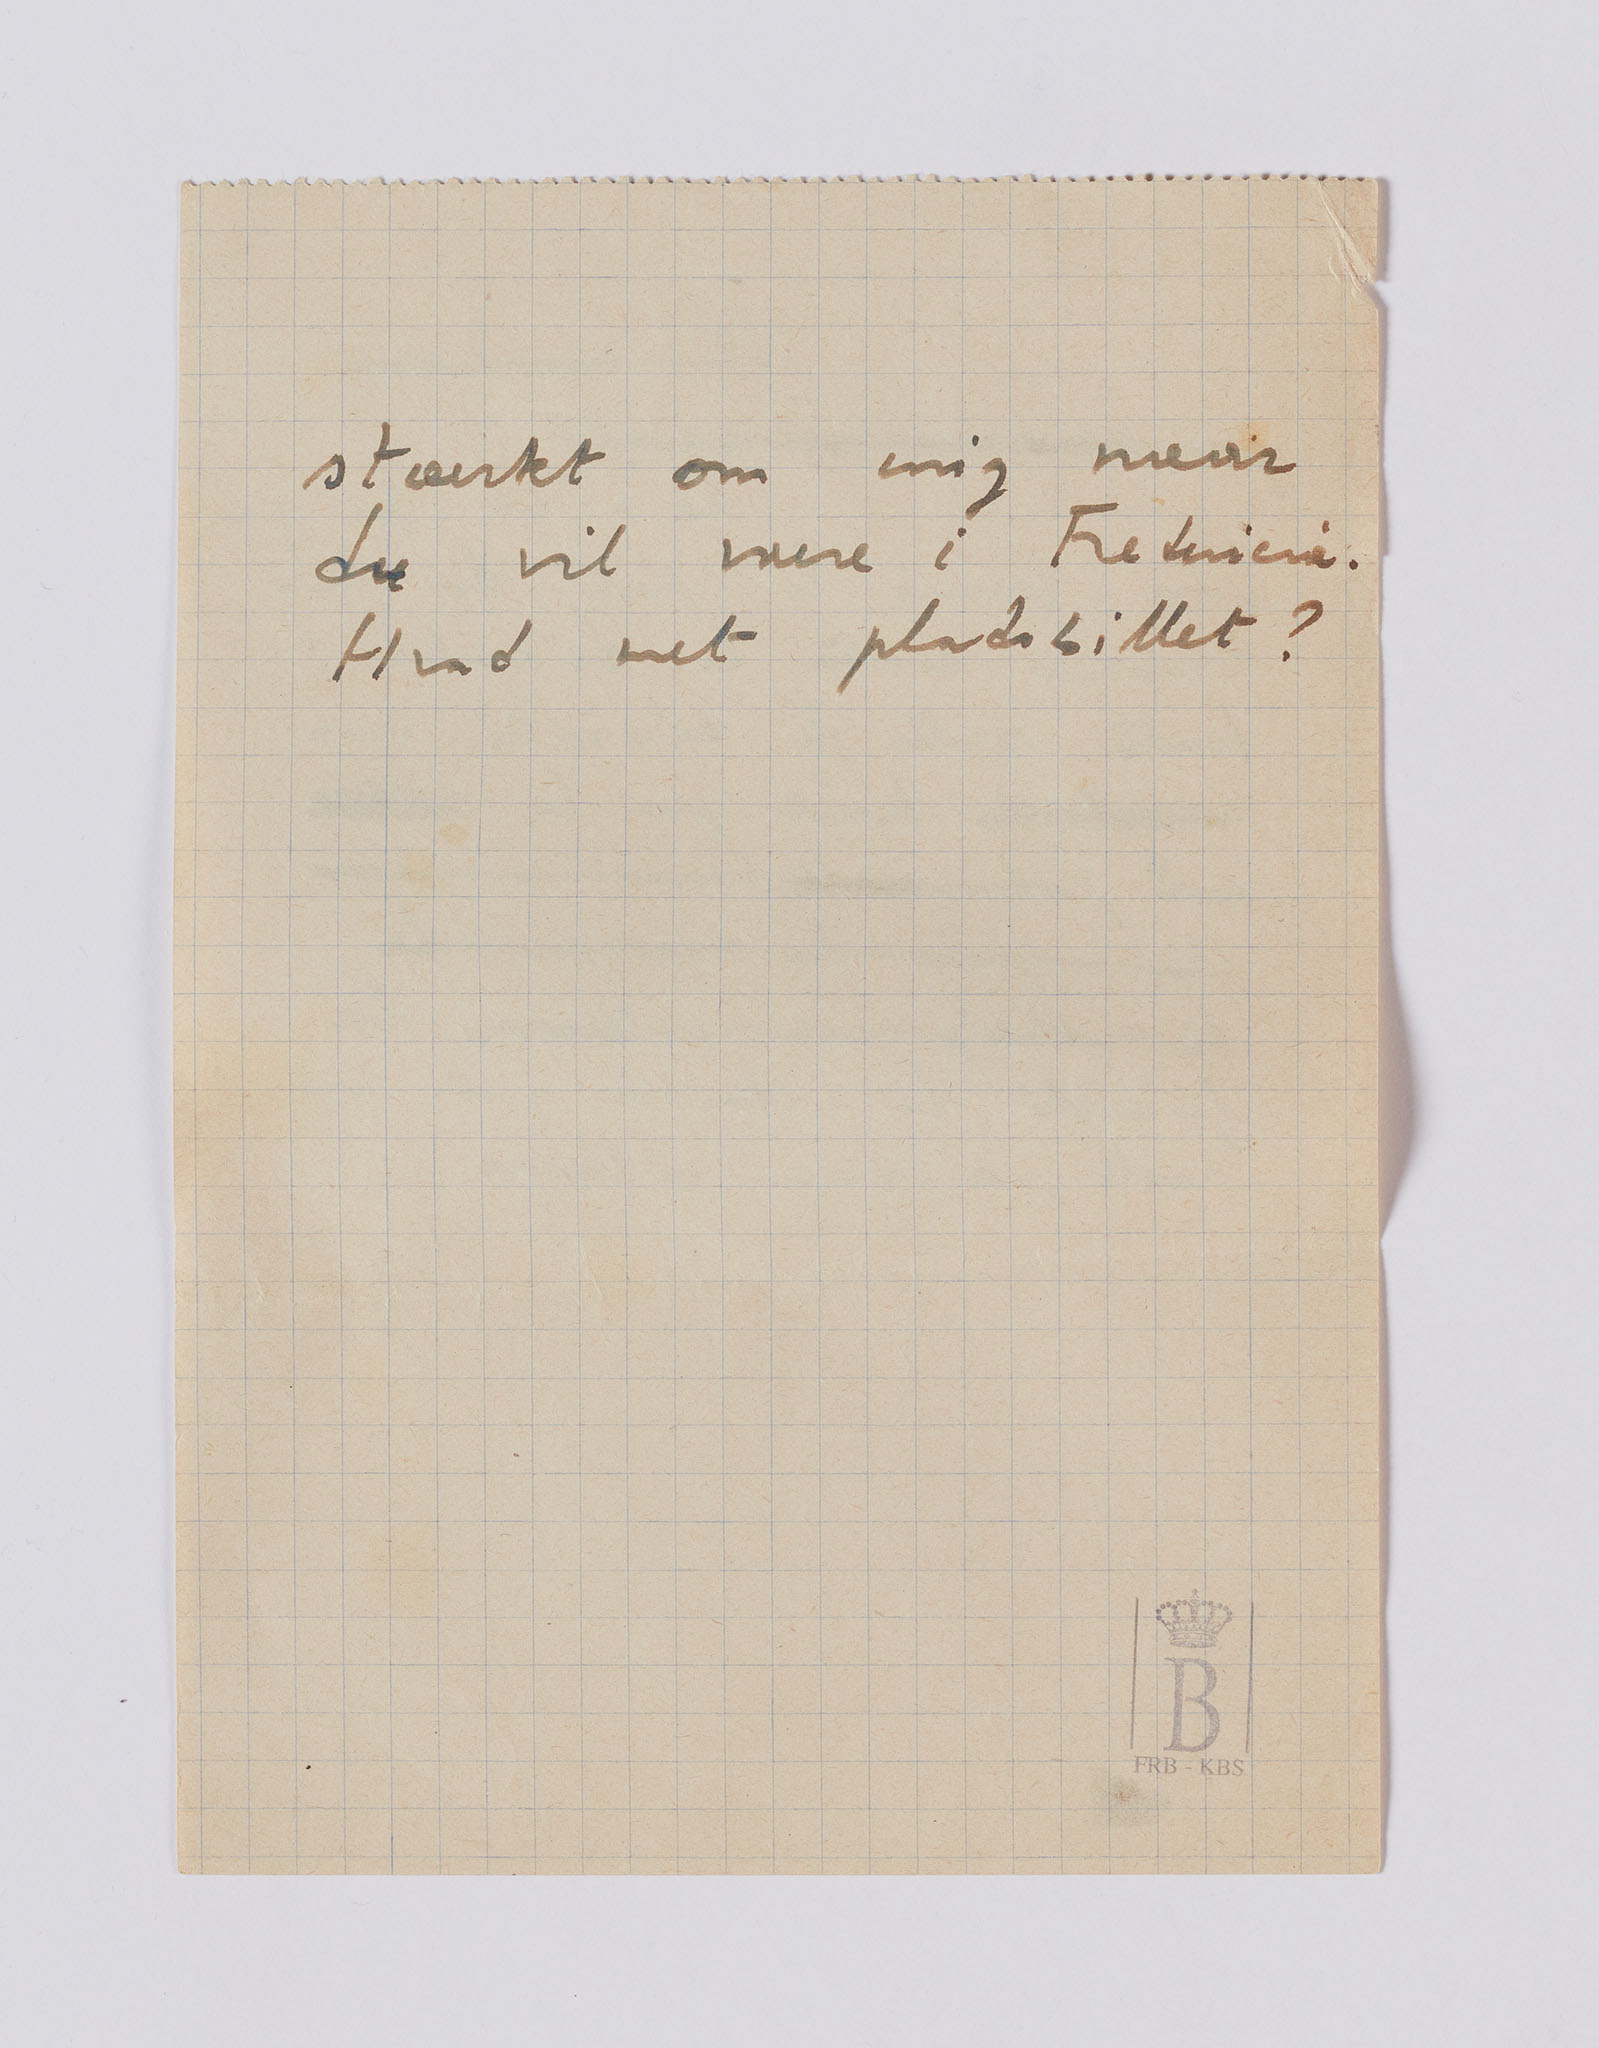 stærkt om mig naar
du vil være i Fredericia.
Hvad met pladsbillet?
B
FRB - KBS